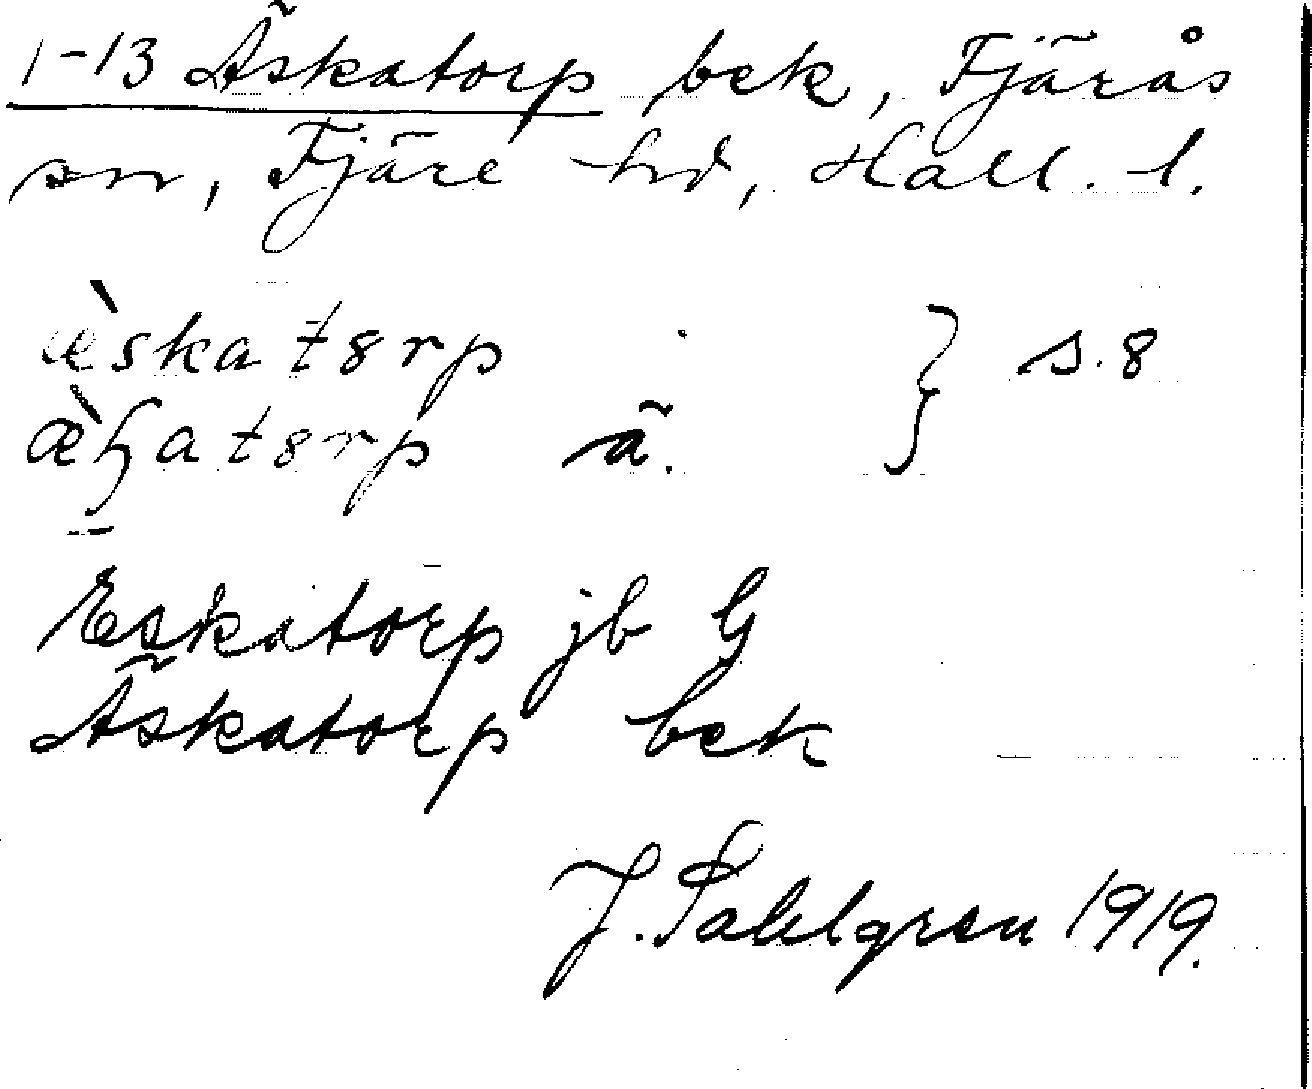 1-13 Äskatorp bek, Fjärås
sn, Fjäre hd, Hall. l.
æ̀skatɞrp } s. 8
æ̀ɧatɞrp ä.
Eskatorp jb G
Äskatorp bek
J. Sahlgren 1919.